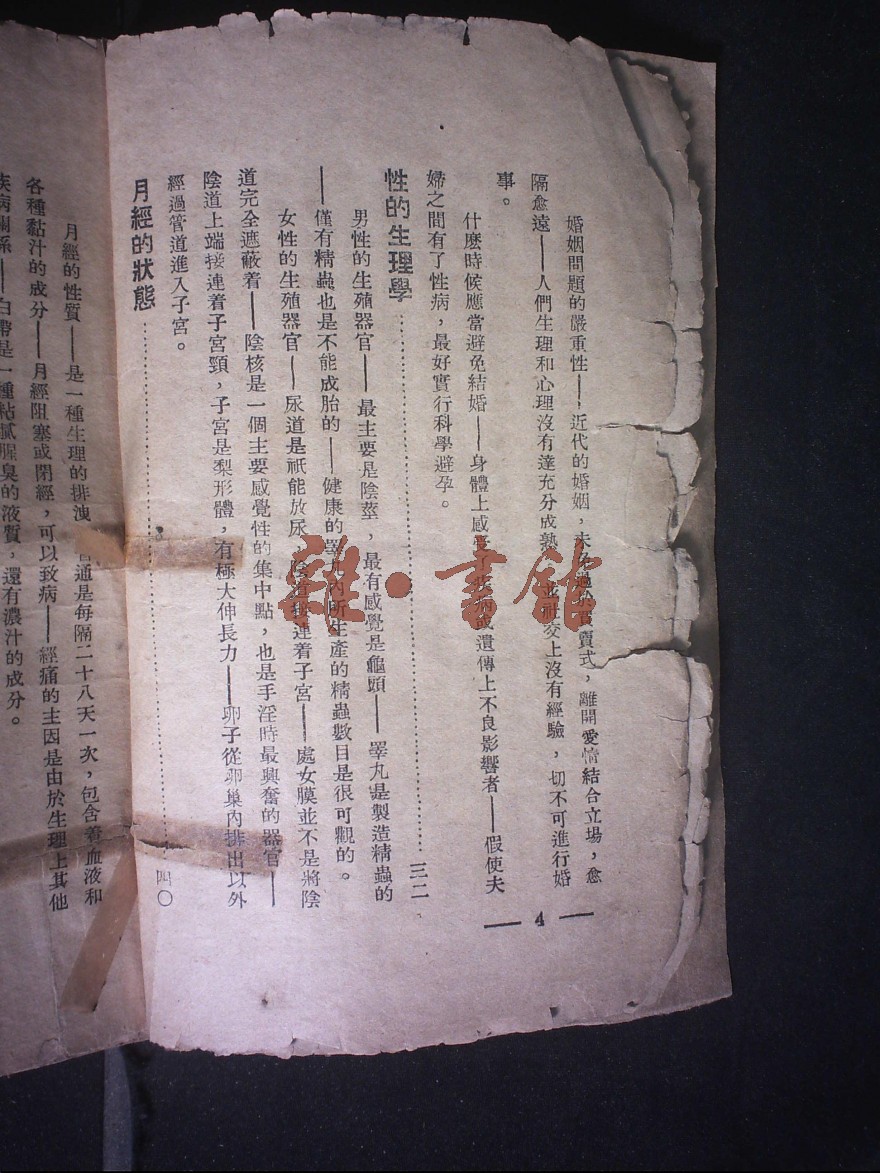 婚姻問題的嚴重性——近代的婚姻，未免過於買賣式，離開愛情結合立場，愈
隔愈遠——人們生理和心理沒有達充分成熟，並社交上沒有經驗，切不可進行婚
事。
什麽時候應當避免結婚——身體上感受了疾病或遺傳上不良影響者——假使夫
婦之間有了性病，最好實行科學避孕。
性的生理學……三二
男性的生殖器官——最主要是陰莖，最有感覺是龜頭——睪丸是製造精蟲的
——僅有精蟲也是不能成胎的——健康的睪丸內所生產的精蟲數目是很可觀的。
女性的生殖器官——尿道是祇能放尿，陰道接連着子宮——處女膜並不是將陰
道完全遮蔽着——陰核是一個主要感覺性的集中點，也是手淫時最興奮的器官——
陰道上端接連着子宮頸，子宮是梨形體，有極大伸長力——卵子從卵巢內排出以外
經過管道進入子宮。
月經的狀態……四〇
月經的性質——是一種生理的排洩，普通是每隔二十八天一次，包含着血液和
各種黏汁的成分——月經阻塞或閉經，可以致病——經痛的主因是由於生理上其他
疾病關係——白帶是一種粘膩腥臭的液質，還有濃汁的成分。
— 4 —
雜·書館